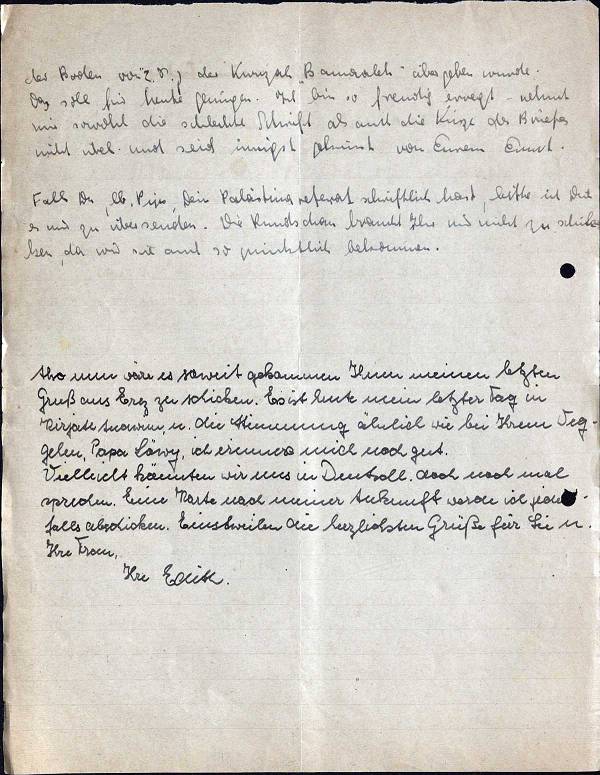 der Boden der Kwuzah übergeben wurde.
Das soll für heute genügen. Ich bin so freudig erregt - nehmt
mir sowohl die schlechte Schrift als auch die Kürze des Briefes
nicht übel und seid innigst gegrüsst von Eurem Ernst.
Falls Du, lb. Dein Palästinareferat schriftlich hast, bitte ich Dich
es mir zu übersenden. Die Rundschau braucht Ihr mir nicht zu schik-
ken, da wir sie amt so pünktlich bekommen.
Also nun wäre es soweit gekommen Ihnen meinen letzten
Gruß aus Erez zu schicken. Es ist heute mein letzter Tag in
Kirjath u. die Stimmung ähnlich wie bei Ihrem Weg-
gehen, Papa Löwy, ich erinnere mich noch gut.
Vielleicht könnten wir uns in Deutschl. doch noch mal
sprechen. Eine Karte nach meiner Ankunft werde ich jeden-
falls abschicken. Einstweilen die herzlichsten Grüße für Sie u.
Ihre Frau,
Ihre Edith.